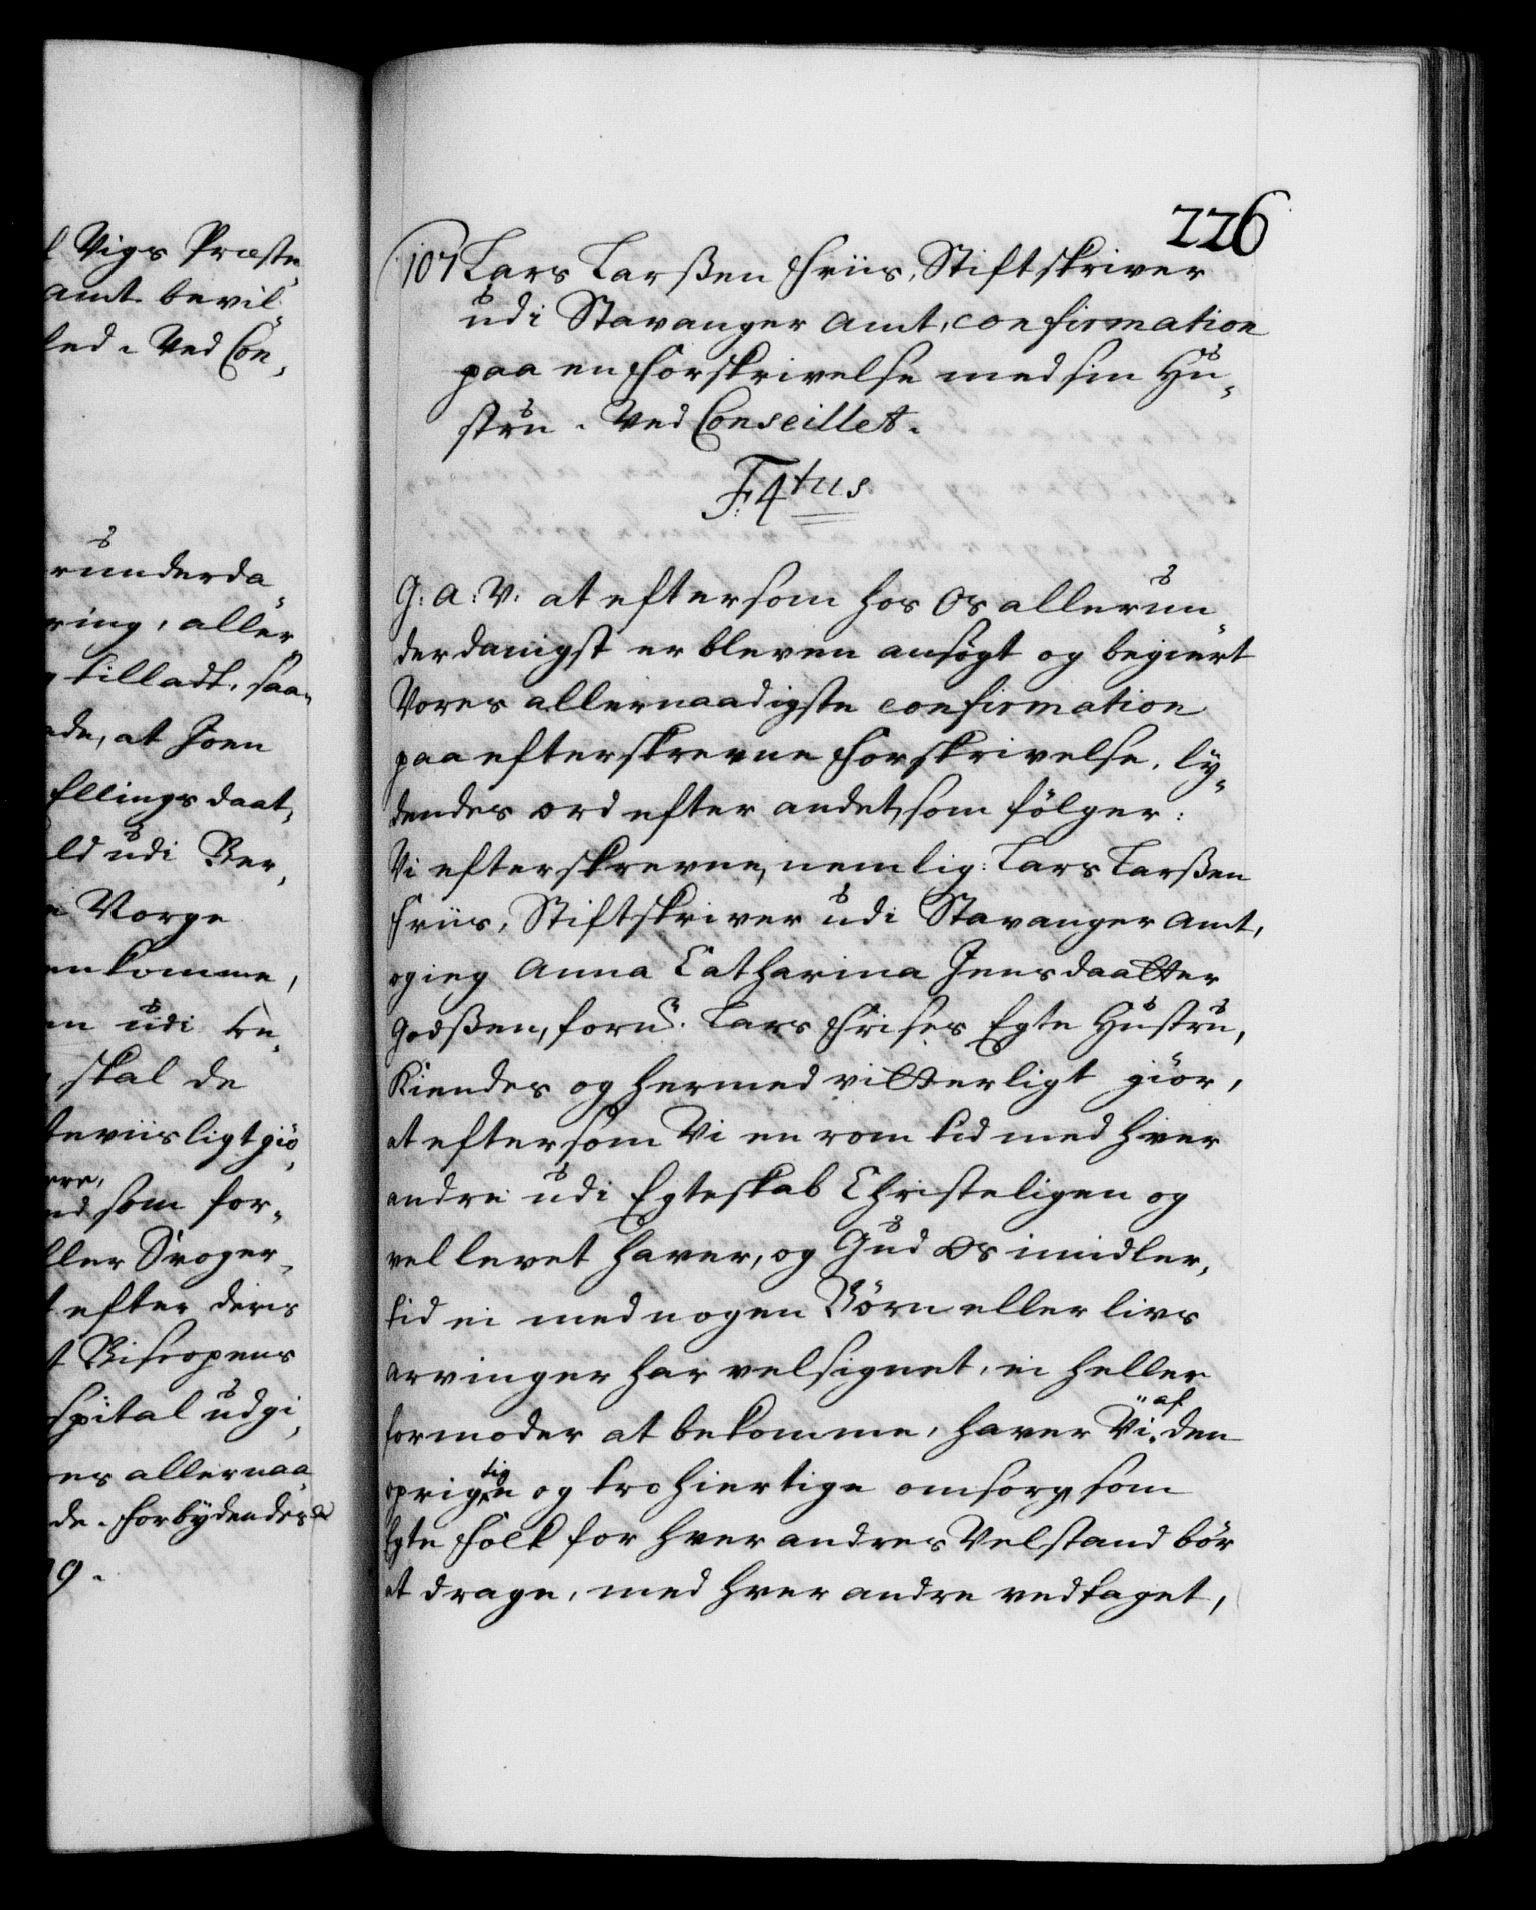 l Vigs Præste¬
amt bevil¬
ed. Ved Con¬
runderda¬
ring, aller¬
tilladt, saa¬
ede, at Joen
Ellingsdaat¬
ld udi Ber¬
e Norge
enkomme,
en udi tre¬
skal de
beviisligt giö¬
ere,
ed som for¬
ller Svoger¬
t efter deris
t Biscopens
spital udgi¬
es allernaa
de. Forbydendes &c
9.
226
107 Lars Larßen Friis, Stiftskriver
udi Stavanger Amt, confirmation
paa en Forskrivelse med sin Hu¬
stru. Ved Conseillet.
F: 4tus
G: A: V: at eftersom hos Os allerun¬
derdanigst er bleven ansögt og begiert
Vores allernaadigste confirmation
paa efterskrevne Forskrivelse, ly¬
dendes ord efter andet, som fölger:
Vi efterskrevne, nemlig: Lars Larßen
Friis, Stiftskriver udi Stavanger Amt,
og ieg Anna Catharina Jensdaatter
Godßen, forn. Lars Frises Egte Hustru,
Kiendes og hermed vitterligt giör,
at eftersom Vi en rom tid med hver
andre udi Egteskab Christeligen og
vel levet haver, og Gud Os imidler¬
tid ei med nogen Börn eller livs
arvinger har velsignet, ei heller
formoder at bekomme, haver Vi af den
oprigtige og trohiertige omsorg, som
Egte Folk for hver andres Velstand bör
at drage, med hver andre vedtaget,